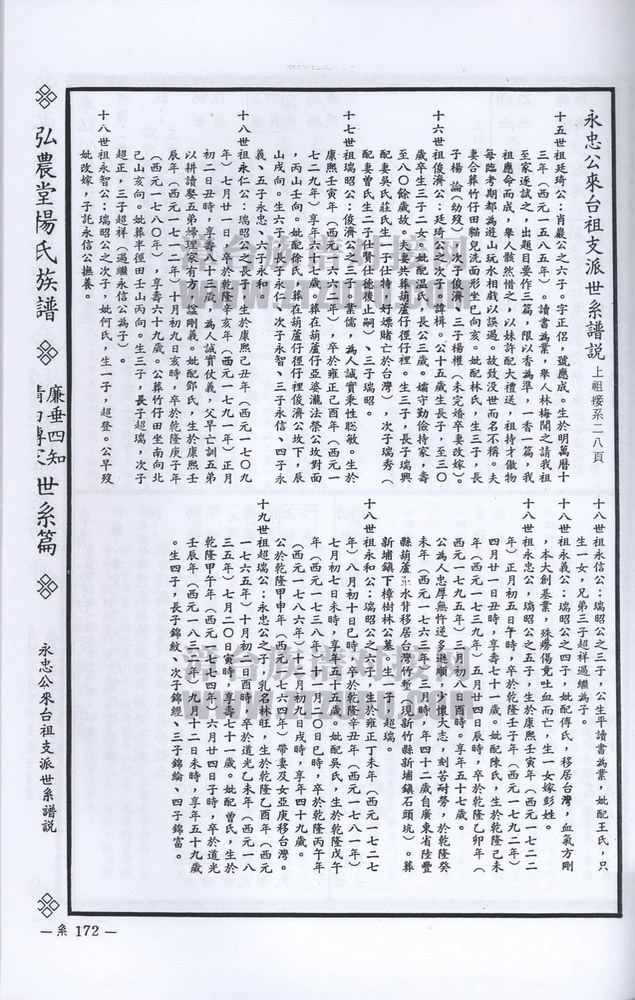 永忠公來台祖支派世系譜說 上祖接系二八頁
十五世祖廷琦公：肖巖公之六子。字正侶，號應成。生於明萬曆十
三年（西元一五八五年）。讀書為業，舉人林梅閣之請我祖
至家逐試之，出題目要作三篇，限以香為準，一香一篇，我
祖應命而成，舉人骸然惜之，以妹許配大禮送，祖持才傲物
每臨考期都為遊山玩水相戲以誤過。故致沒世而名不稱。夫
妻合葬竹仔田貓兒洗面形坐巳向亥。她配林氏，生三子，長
子楊 諭（幼歿）、次子俊濟、三子楊櫂（未完婚卒妻改嫁）。
十六世祖俊濟公：廷琦公之次子。諱楫。公十五歲生長子，至三〇
歲卒生三子二女。她配温氏，長公三歲。孀守勤儉持家，壽
至八〇餘歲故。夫妻共葬葫蘆仔徑仔裡。生三子，長子瑞興
配妻吳氏莊氏生一子仕特（好嫖賭亡於台灣），次子瑞秀（
配妻曾氏生二子仕賢仕德後止嗣）、三子瑞昭。
十七世祖瑞昭公：俊濟公之三子。業儒，為人誠實秉性聪敏。生於
康熙壬寅年（西元一六六二年），卒於雍正己酉年（西元一
七二九年）享年六十七歲。葬在葫蘆仔亞婆瀧法縈公坟對面
，丙山壬向。她配徐氏，葬在葫蘆仔徑仔裡俊濟公坟下，辰
山戌向。生六子，長子永仁、次子永智、三子永信、四子永
義、五子永忠、六子永和。
十八世祖永仁公：瑞昭公之長子，生於康熙己丑年（西元一七〇九
年）七月廿一日，卒於乾隆辛亥年（西元一七九一年）正月
初二日丑時，享壽八十三歲，為人誠實仗義，父早亡訓五弟
以耕讀娶五弟婦理家有方，謚剛義。她配鄧氏，生於康熙壬
辰年（西元一七一二年）十月初九日亥時，卒於乾隆庚子年
（西元一七八〇年），享壽六十九歲。公葬竹仔田坐南向北
己山亥向。她葬半徑田壬山丙向。生三子，長子超瑞，次子
超正，三子超祥（過繼永信公為子）。
十八世祖永智公：瑞昭公之次子，她何氏，生一子，超登。公早歿
她改嫁，子託永信公撫養。
十八世祖永信公：瑞昭公之三子，公生平讀書為業，她配王氏，只
生一女，兄弟三子超祥過繼為子。
十八世祖永義公：瑞昭公之四子，她配傅氏，移居台灣，血氣方剛
，本大創基業，殊癆傷竟吐血而亡，生一女嫁彭姓。
十八世祖永忠公，瑞昭公之五子，生於康熙壬寅年（西元一七二二
年）正月初五日午時，卒於乾隆壬子年（西元一七九二年）
四月廿一日丑時，享壽七十一歲。她配陳氏，生於乾隆己未
年（西元一七三九年）五月廿四日辰時，卒於乾隆乙卯年（
西元一七九五年）三月初八日酉時。享年五十七歲。
公為人忠厚無忤逆多遜順，少懷大志，刻苦耐勞，於乾隆癸
未年（西元一七六三年）三月時，年四十二歲自廣東省陸豐
縣葫蘆 水背移居台灣大 （現新竹縣新埔鎮石頭坑）。葬
新埔鎮下樟樹林公墓，生一子，超瑞。
十八世祖永和公：瑞昭公之六子，生於雍正丁未年（西元一七二七
年）八月初十日巳時，卒於乾隆辛丑年（西元一七八一年）
七月初七日未時，享年五十五歲。她配吳氏，生於乾隆戊午
年（西元一七三八年）十一月二〇日巳時，卒於乾隆丙午年
（西元一七八六年）十二月初九日戌時，享年四十九歲。
公於乾隆甲申年（西元一七六四年）帶妻及女亞庚移台灣。
十九世祖超瑞公：永忠公之子。乳名林旺，生於乾隆乙酉年（西元
一七六五年）十月初二日酉時，卒於道光乙未年（西元一八
三五年）七月二〇日寅時，享壽七十一歲。她配曾氏，生於
乾隆甲午年（西元一七七四年）六月廿四日子時，卒於道光
壬辰年（西元一八三二年）九月十二日未時，享年五十九歲
。生四子，長子錦紋、次子錦經、三子錦綸、四子錦富。
弘農堂楊氏族譜
廉垂四知
世系篇
永忠公來台祖支派世系譜說
— 系 172 —